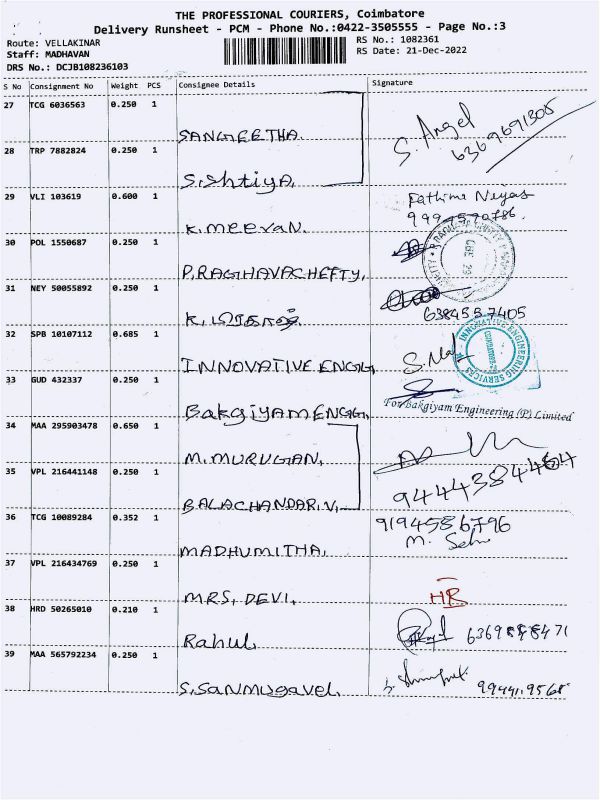 THE PROFESSIONAL COURIERS, Coimbatore
Delivery Runsheet - PCM - Phone No.:0422-3505555 - Page No.:3
Route: VELLAKINAR
RS No.: 1082361
Staff: MADHAVAN
RS Date: 21-Dec-2022
DRS No.: DCJB108236103
S No Consignment No Weight PCS Consignee Details Signature
27 TCG 6036563 0.250 1
SANGEETHA
S. Angel
6369691305
28 TRP 7882824 0.250 1
S.Shtiya,
29 VLI 103619 0.600 1
K.meeran.
Fathima Neyas
30 POL 1550687 0.250 1
P.RAGHAVACHETTY,
31 NEY 50055892 0.250 1
K.
6384557405
32 SPB 10107112 0.685 1
INNOVATIVE ENGG,
INNOVATIVE ENGINEERING SERVICES
33 GUD 432337 0.250 1
BakgiyamENGG,
For Bakgiyam Engineering (P) Limited
34 MAA 295903478 0.650 1
M.MURUGAN,
35 VPL 216441148 0.250 1
BALACHANDAR.V,
36 TCG 10089284 0.352 1
MADHUMITHA,
9194586796
37 VPL 216434769 0.250 1
MRS, DEVI,
HR
38 HRD 50265010 0.210 1
Rahul,
39 MAA 565792234 0.250 1
S.Sanmugavel,